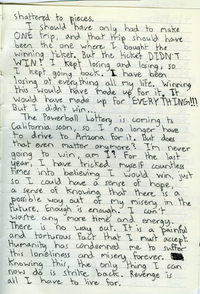 shattered to pieces.
I should have only had to make
ONE trip, and that trip should have
been the one where I bought the
winning ticket. But the ticket DIDN'T
WIN! I kept losing and losing, so
I kept going back. I have been
losing at everything all my life. Winning
this would have made up for it. This
would have made up for EVERYTHING!!!
But I didn't win...
The Powerball Lottery is coming to
California soon, so I no longer have
to drive to Arizona for it. But does
that even matter anymore? I'm never
going to win, am I? For the last
year, I have tricked myself countless
times into believing I would win, just
so I could have a sense of hope,
a sense of knowing that there is a
possible way out of my misery in the
future. Enough is enough. I can't
waste any more time and energy.
There is no way out. It is a painful
and torturous fact that I must accept.
Humanity has condemned me to suffer
this loneliness and misery forever.
Knowing this, the only thing I can
now do is strike back. Revenge is
all I have to live for.